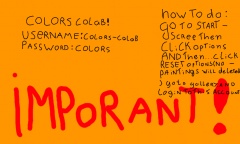 COLORS COLAB!
USERNAME:COLORS-COLAB
PASSWORD:COLORS
how TO do:
GO TO START-
USCREEThen
CLICK OPTIONS
AND Then.. CLICK
RESET OPTIONS(NO-
PAINTINGS WILL deleted
) goto
LOG
iMPORANT!